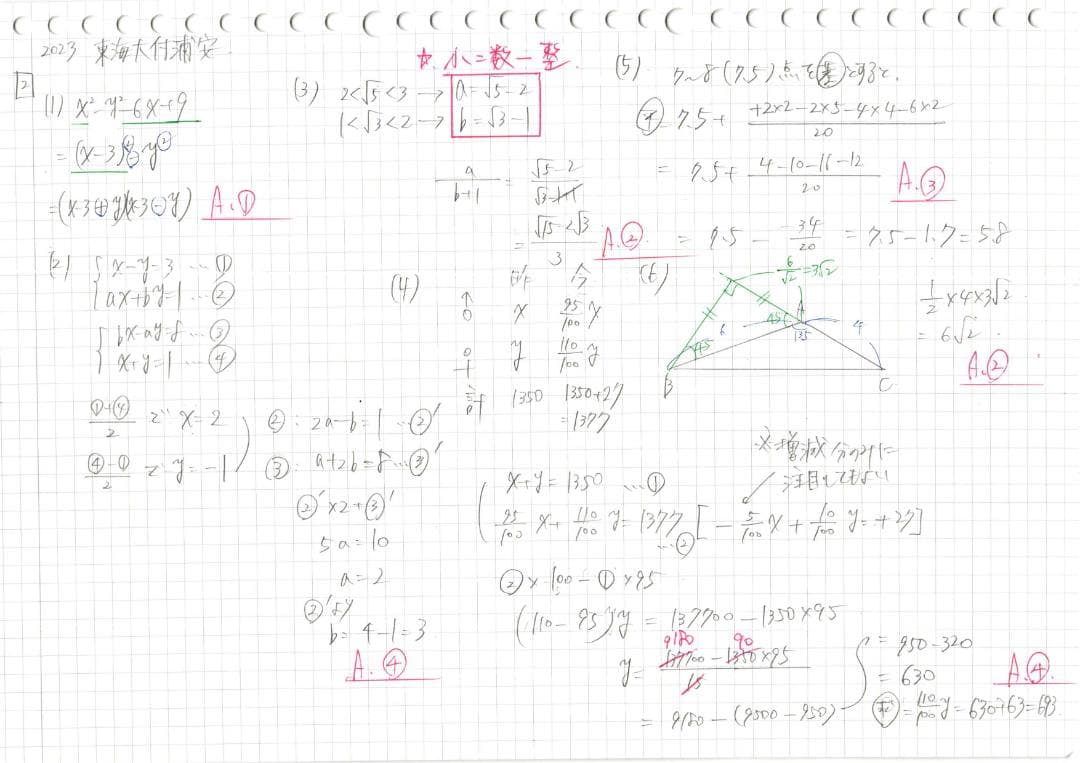 2023 東海大付浦安
2
(1) x²-y²-6x+9
= (x-3)²-y²
=(x-3+y)(x-3-y) A.①
(2) {x-y=3 …①
ax+by=1 …②
{bx-ay=8 …③
x+y=1 …④
(①+④)/2 で x=2
(④-①)/2 で y=-1
②: 2a-b=1 …②'
③: a+2b=8 …③'
②'×2+③'
5a=10
a=2
②'より
b=4-1=3
A.④
☆ 小=数-整
(3) 2<√5<3 → a=√5-2
1<√3<2 → b=√3-1
a/(b+1) = (√5-2)/(√3-1+1)
= (√15-2√3)/3 A.②
(4) 昨 今
♂ x 95/100 x
♀ y 110/100 y
計 1350 1350+27
=1377
{x+y=1350 …①
95/100 x + 110/100 y = 1377 …② [-5/100 x + 10/100 y = +27]
※増減分のみに
注目してもよい
②×100-①×95
(110-95)y = 137700-1350×95
y = (137700-1350×95)/15
9180 90
= 9180-(9500-950)
= 950-320
= 630
A.④
求 = 110/100 y = 630+63=693
(5) 7~8(7.5)点を基とすると、
平 = 7.5+ (+2×2-2×5-4×4-6×2)/20
= 7.5+ (4-10-16-12)/20 A.③
= 7.5 - 34/20 = 7.5-1.7=5.8
(6)
6/√2=3√2
A
B
C
6
4
45
45
135
1/2×4×3√2
= 6√2
A.②